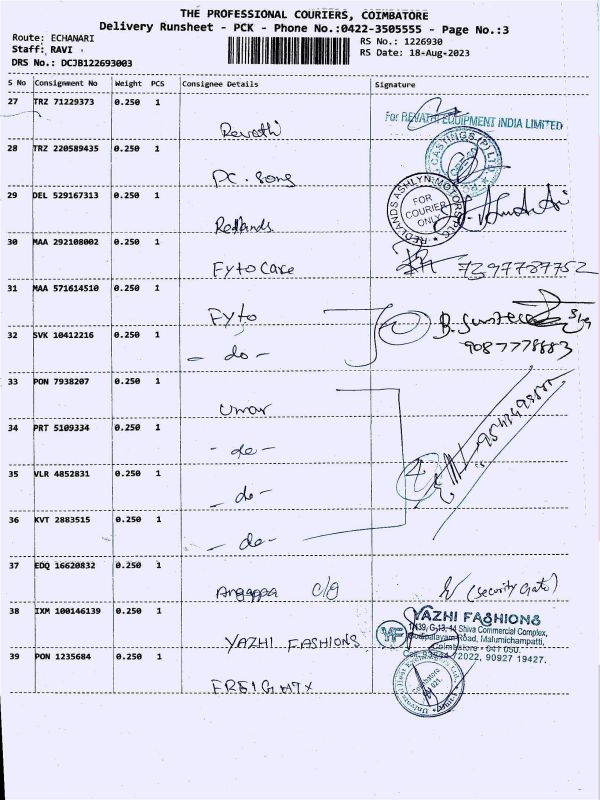 THE PROFESSIONAL COURIERS, COIMBATORE
Delivery Runsheet - PCK - Phone No.:0422-3505555 - Page No.:3
Route: ECHANARI
RS No.: 1226930
Staff: RAVI
RS Date: 18-Aug-2023
DRS No.: DCJB122693003
S No Consignment No Weight PCS Consignee Details Signature
27 TRZ 71229373 0.250 1
Revathi
For REVATHI EQUIPMENT INDIA LIMITED
28 TRZ 220589435 0.250 1
PC. Song
CASTINGS (P) LTD.
29 DEL 529167313 0.250 1
Redlands
REDLANDS ASHLYN MOTORS PLC
FOR
COURIER
ONLY
30 MAA 292108002 0.250 1
Fyto Care
7397787752
31 MAA 571614510 0.250 1
Fyto
32 SVK 10412216 0.250 1
- do -
9087778883
33 PON 7938207 0.250 1
Umar
34 PRT 5109334 0.250 1
- do -
35 VLR 4852831 0.250 1
- do -
36 KVT 2883515 0.250 1
- do -
37 EDQ 16620832 0.250 1
Angappa c/g
(security Gate)
38 IXM 100146139 0.250 1
YAZHI FASHIONS
YF
YAZHI FASHIONS
Shiva Commercial Complex,
Road, Malumichampatti,
Coimbatore - 641 050.
2022, 90927 19427.
39 PON 1235684 0.250 1